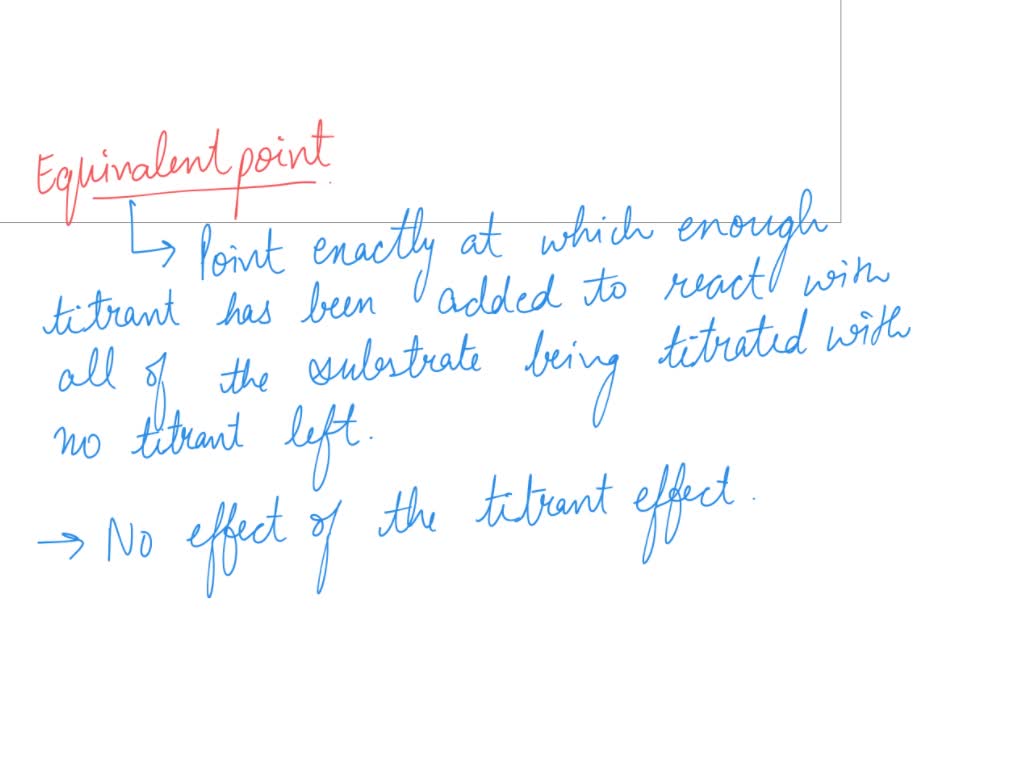 Equivalent point.
↳ Point exactly at which enough
titrant has been added to react with
all of the substrate being titrated with
no titrant left.
→ No effect of the titrant effect.